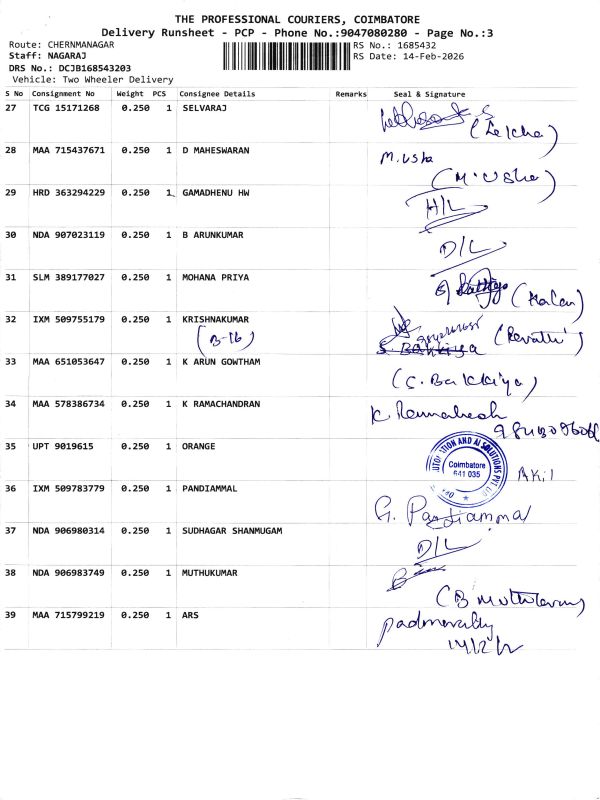 THE PROFESSIONAL COURIERS, COIMBATORE
Delivery Runsheet - PCP - Phone No.:9047080280 - Page No.:3
Route: CHERNMANAGAR RS No.: 1685432
Staff: NAGARAJ RS Date: 14-Feb-2026
DRS No.: DCJB168543203
Vehicle: Two Wheeler Delivery
S No Consignment No Weight PCS Consignee Details Remarks Seal & Signature
27 TCG 15171268 0.250 1 SELVARAJ
28 MAA 715437671 0.250 1 D MAHESWARAN M.Usha
(M.Usha)
29 HRD 363294229 0.250 1 GAMADHENU HW H/L
30 NDA 907023119 0.250 1 B ARUNKUMAR D/L
31 SLM 389177027 0.250 1 MOHANA PRIYA
32 IXM 509755179 0.250 1 KRISHNAKUMAR (Revathi)
(B-16) S. Bakkiya
33 MAA 651053647 0.250 1 K ARUN GOWTHAM (S. Bakkiya)
34 MAA 578386734 0.250 1 K RAMACHANDRAN K
35 UPT 9019615 0.250 1 ORANGE AKil
AND AI SOLUTIONS PVT
Coimbatore
641 035
36 IXM 509783779 0.250 1 PANDIAMMAL G. Pandiammal
37 NDA 906980314 0.250 1 SUDHAGAR SHANMUGAM D/L
38 NDA 906983749 0.250 1 MUTHUKUMAR
39 MAA 715799219 0.250 1 ARS